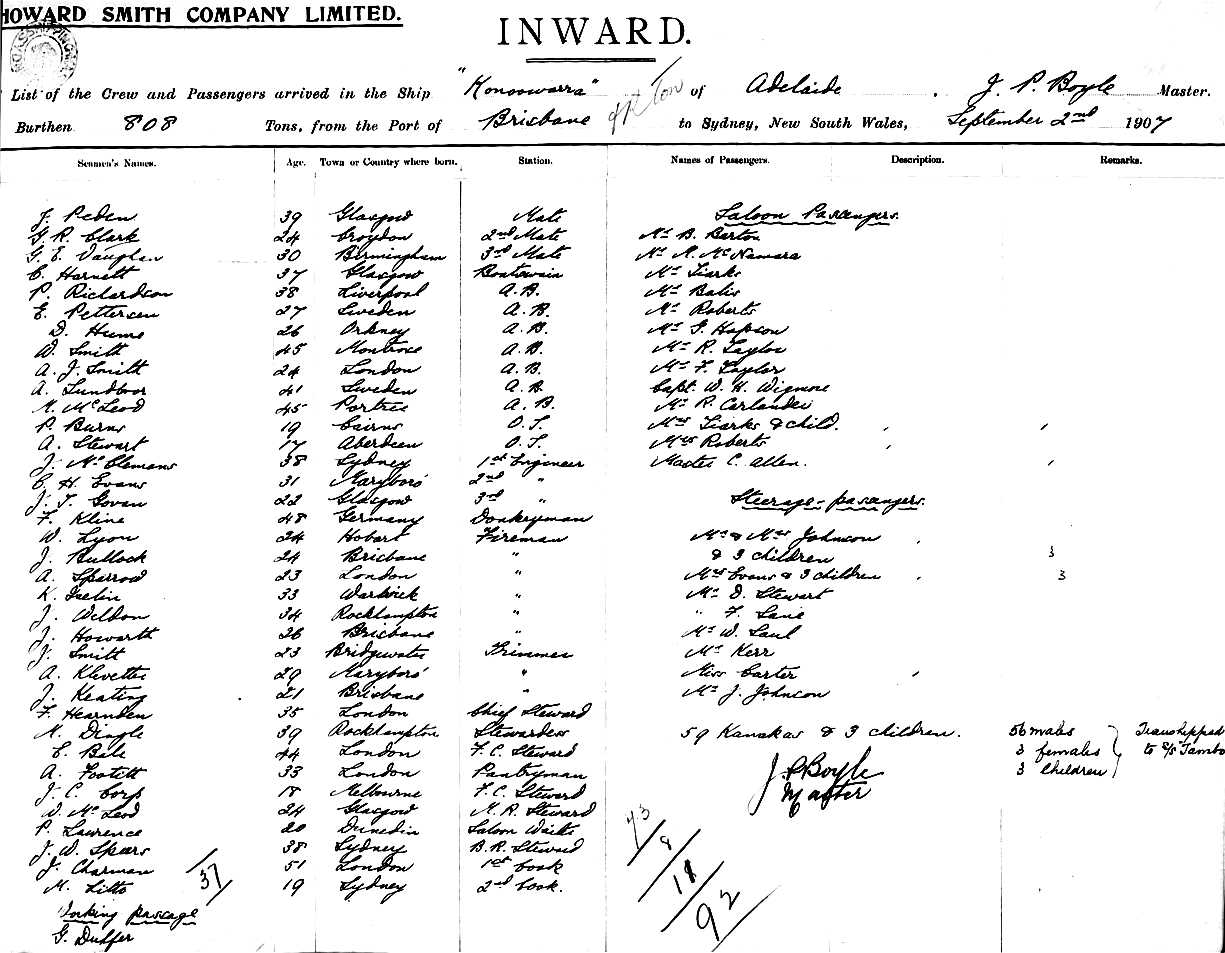 HOWARD SMITH COMPANY LIMITED.
INWARD.
List of the Crew and Passengers arrived in the Ship "Konoowarra" of Adelaide, J. P. Boyle Master.
Burthen 808 Tons, from the Port of Brisbane to Sydney, New South Wales, September 2nd 1907
Seamen's Names. Age. Town or Country where born. Station. Names of Passengers. Description. Remarks.
J. Peden 39 Glasgow Mate Saloon Passengers
G. R. Clark 24 Croydon 2nd Mate Mr B. Barton
G. E. Vaughan 30 Birmingham 3rd Mate Mr R. McNamara
C. Harnett 37 Glasgow Boatswain Mr Tiarks
P. Richardson 38 Liverpool A.B. Mr Balis
E. Pettersen 27 Sweden A.B. Mr Roberts
D. Hume 26 Orkney A.B. Mr G. Hapson
W. Smith 45 Montrose A.B. Mr R. Taylor
A. J. Smith 24 London A.B. Mr F. Taylor
A. 41 Sweden A.B. Capt. W. H. Wigmore
N. McLeod 45 Portree A.B. Mr R. Carlander
P. Burns 19 Cairns O.S. Mrs Tiarks & child.
A. Stewart 17 Aberdeen O.S. Mrs Roberts
J. McClemans 38 Sydney 1st Engineer Master C. Allen.
C. H. Evans 31 Maryboro' 2nd "
J. T. Govan 22 Glasgow 3rd " Steerage passengers.
F. Kline 48 Germany Donkeyman
W. Lyon 24 Hobart Fireman Mr & Mrs Johnson
J. Bullock 24 Brisbane " & 3 children 3
A. Sparrow 23 London " Mrs Evans & 3 children 3
K. Iselin 33 Warwick " Mr D. Stewart
J. Weldon 34 Rockhampton " " F. Lane
J. Howarth 26 Brisbane " Mr W. Saul
J. Smith 23 Bridgewater Trimmer Mr Kerr
A. Klevetter 29 Maryboro' " Miss Carter
J. Keating 21 Brisbane " Mr J. Johnson
F. Hearnden 35 London Chief Steward
N. Dingle 39 Rockhampton Stewardess 59 Kanakas & 3 children. 56 males Transhipped
E. Bale 44 London F. C. Steward 3 females to s/s Tambo
A. Footitt 33 London Pantryman 3 Children
J. C. Corp 18 Melbourne F. C. Steward J. P. Boyle
D. McLeod 24 Glasgow M. R. Steward Master
P. Lawrence 20 Dunedin Saloon Waiter 73
J. W. Spears 38 Sydney B. R. Steward 8
J. Charman 51 London 1st Cook 18
M. Litto 19 Sydney 2nd Cook. 37 92
Working passage
G. Duffer